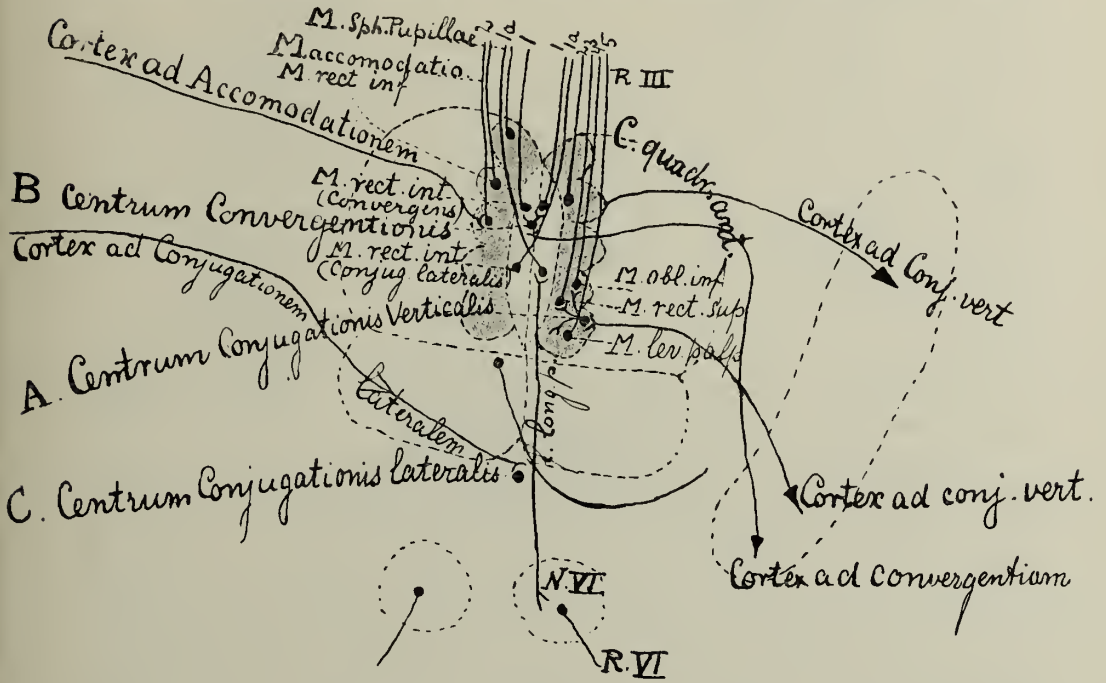 M. Sph. Pupillae
M. accomodatio.
M. rect inf
R III
Cortex ad Accomodationem
C. quadr. ant.
M. rect. int
(Convergens)
B Centrum Convergentionis
Cortex ad Conjugationem
lateralem
M. rect. int
(Conjug lateralis
Cortex ad Conj. vert
M. obl. inf
M. rect. sup
M. lev. palp
A. Centrum Conjugationis Verticalis
f. long. p
C. Centrum Conjugationis lateralis
Cortex ad conj. vert.
Cortex ad convergentiam
N. VI
R. VI